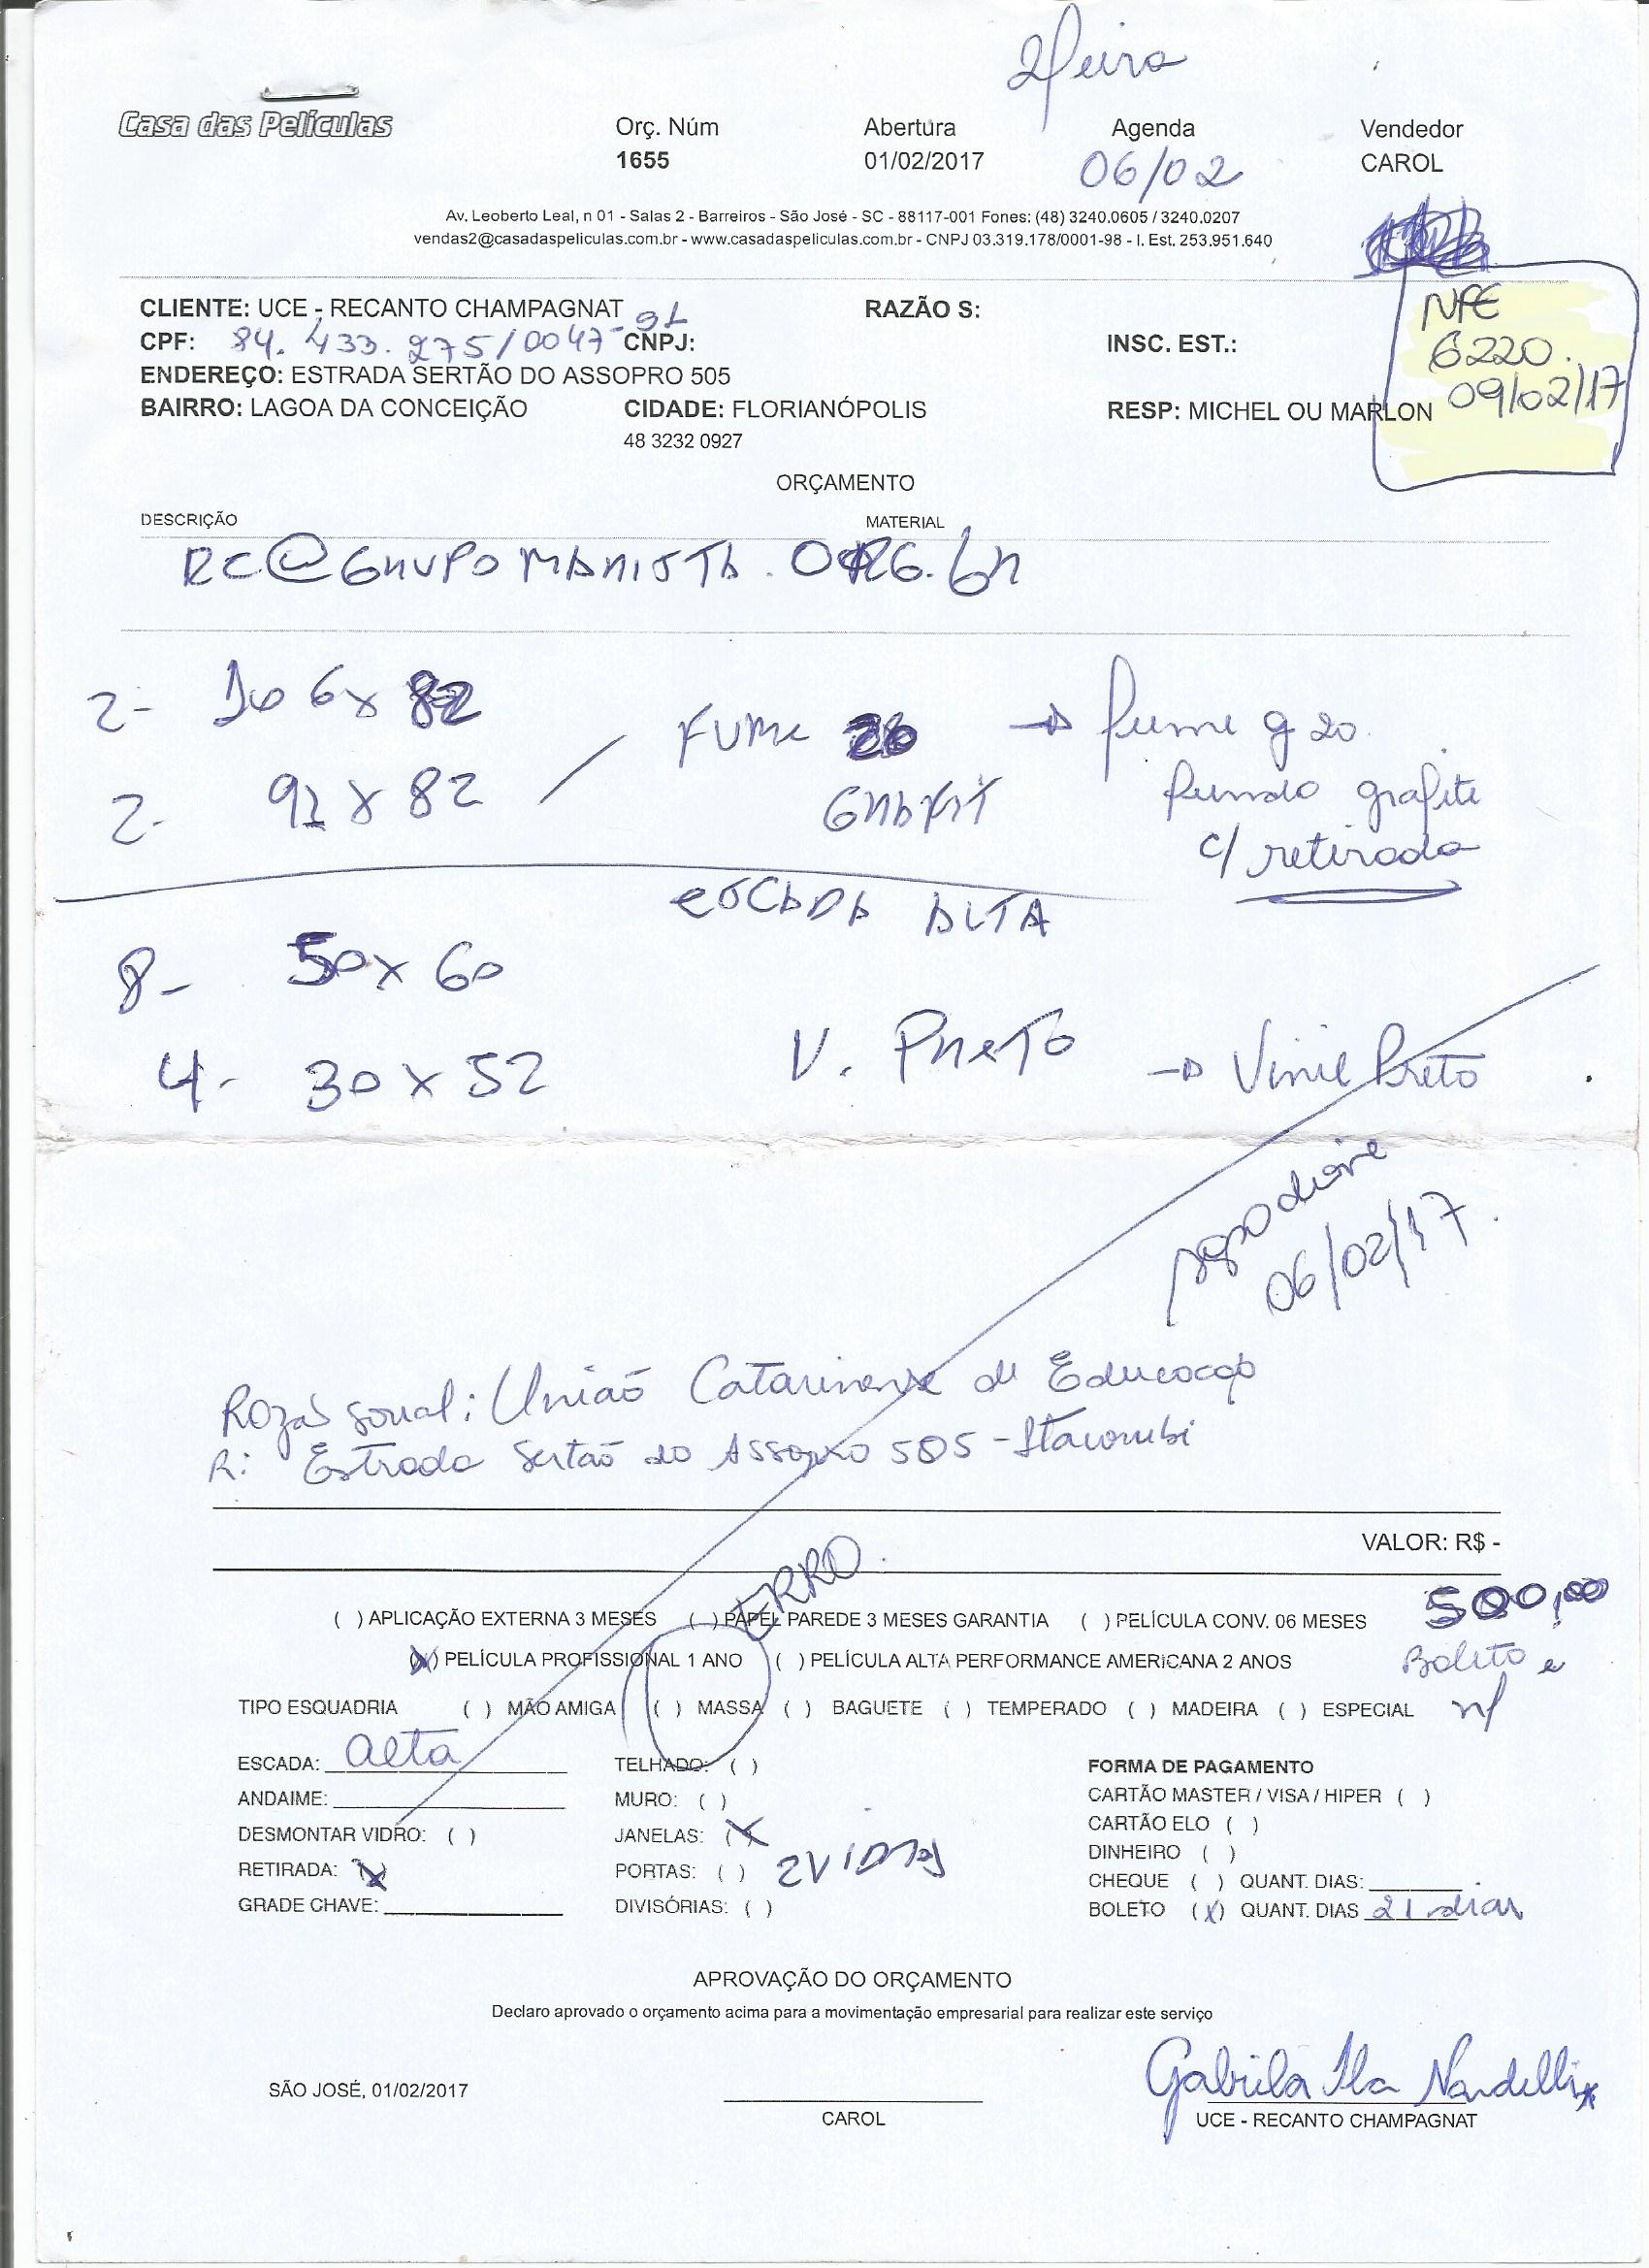 2feira
Casa das Películas
Orç. Núm Abertura Agenda Vendedor
1655 01/02/2017 06/02 CAROL
Av. Leoberto Leal, n 01 - Salas 2 - Barreiros - São José - SC - 88117-001 Fones: (48) 3240.0605 / 3240.0207
vendas2@casadaspeliculas.com.br - www.casadaspeliculas.com.br - CNPJ 03.319.178/0001-98 - I. Est. 253.951.640
CLIENTE: UCE - RECANTO CHAMPAGNAT RAZÃO S:
CPF: 84.433.275/0047-91 CNPJ: INSC. EST.:
ENDEREÇO: ESTRADA SERTÃO DO ASSOPRO 505
BAIRRO: LAGOA DA CONCEIÇÃO CIDADE: FLORIANÓPOLIS RESP: MICHEL OU MARLON
48 3232 0927
NFE
6220.
09/02/17
ORÇAMENTO
DESCRIÇÃO MATERIAL
RC@GRUPOMARISTA.ORG.br
2- 106 x 82 FUME 20 → fume g 20.
2- 91 x 82 GRAFIT fundo grafite
c/ retirada
ESCADA ALTA
8- 50 x 60
4- 30 x 52 V. PRETO → Vinil Preto
06/02/17.
Razão social: União Catarinense de Educação
R: Estrada Sertão do Assopro 505 - Itacorubi
VALOR: R$ -
ERRO.
500,00
( ) APLICAÇÃO EXTERNA 3 MESES ( ) PAPEL PAREDE 3 MESES GARANTIA ( ) PELÍCULA CONV. 06 MESES
(X) PELÍCULA PROFISSIONAL 1 ANO ( ) PELÍCULA ALTA PERFORMANCE AMERICANA 2 ANOS Boleto e
TIPO ESQUADRIA ( ) MÃO AMIGA ( ) MASSA ( ) BAGUETE ( ) TEMPERADO ( ) MADEIRA ( ) ESPECIAL nf
ESCADA: alta TELHADO: ( ) FORMA DE PAGAMENTO
ANDAIME: MURO: ( ) CARTÃO MASTER / VISA / HIPER ( )
DESMONTAR VIDRO: ( ) JANELAS: (X) CARTÃO ELO ( )
DINHEIRO ( )
RETIRADA: (X) PORTAS: ( ) CHEQUE ( ) QUANT. DIAS:
GRADE CHAVE: DIVISÓRIAS: ( ) BOLETO (X) QUANT. DIAS 21 dias
APROVAÇÃO DO ORÇAMENTO
Declaro aprovado o orçamento acima para a movimentação empresarial para realizar este serviço
SÃO JOSÉ, 01/02/2017
CAROL UCE - RECANTO CHAMPAGNAT